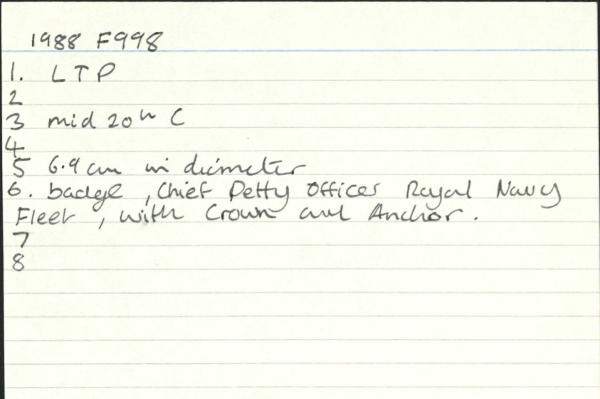 1988 F998
1. LTP
2
3 mid 20th C
4
5 6.9 cm in diameter
6. badge, Chief Petty Officer Royal Navy
Fleet, with Crown and Anchor.
7
8